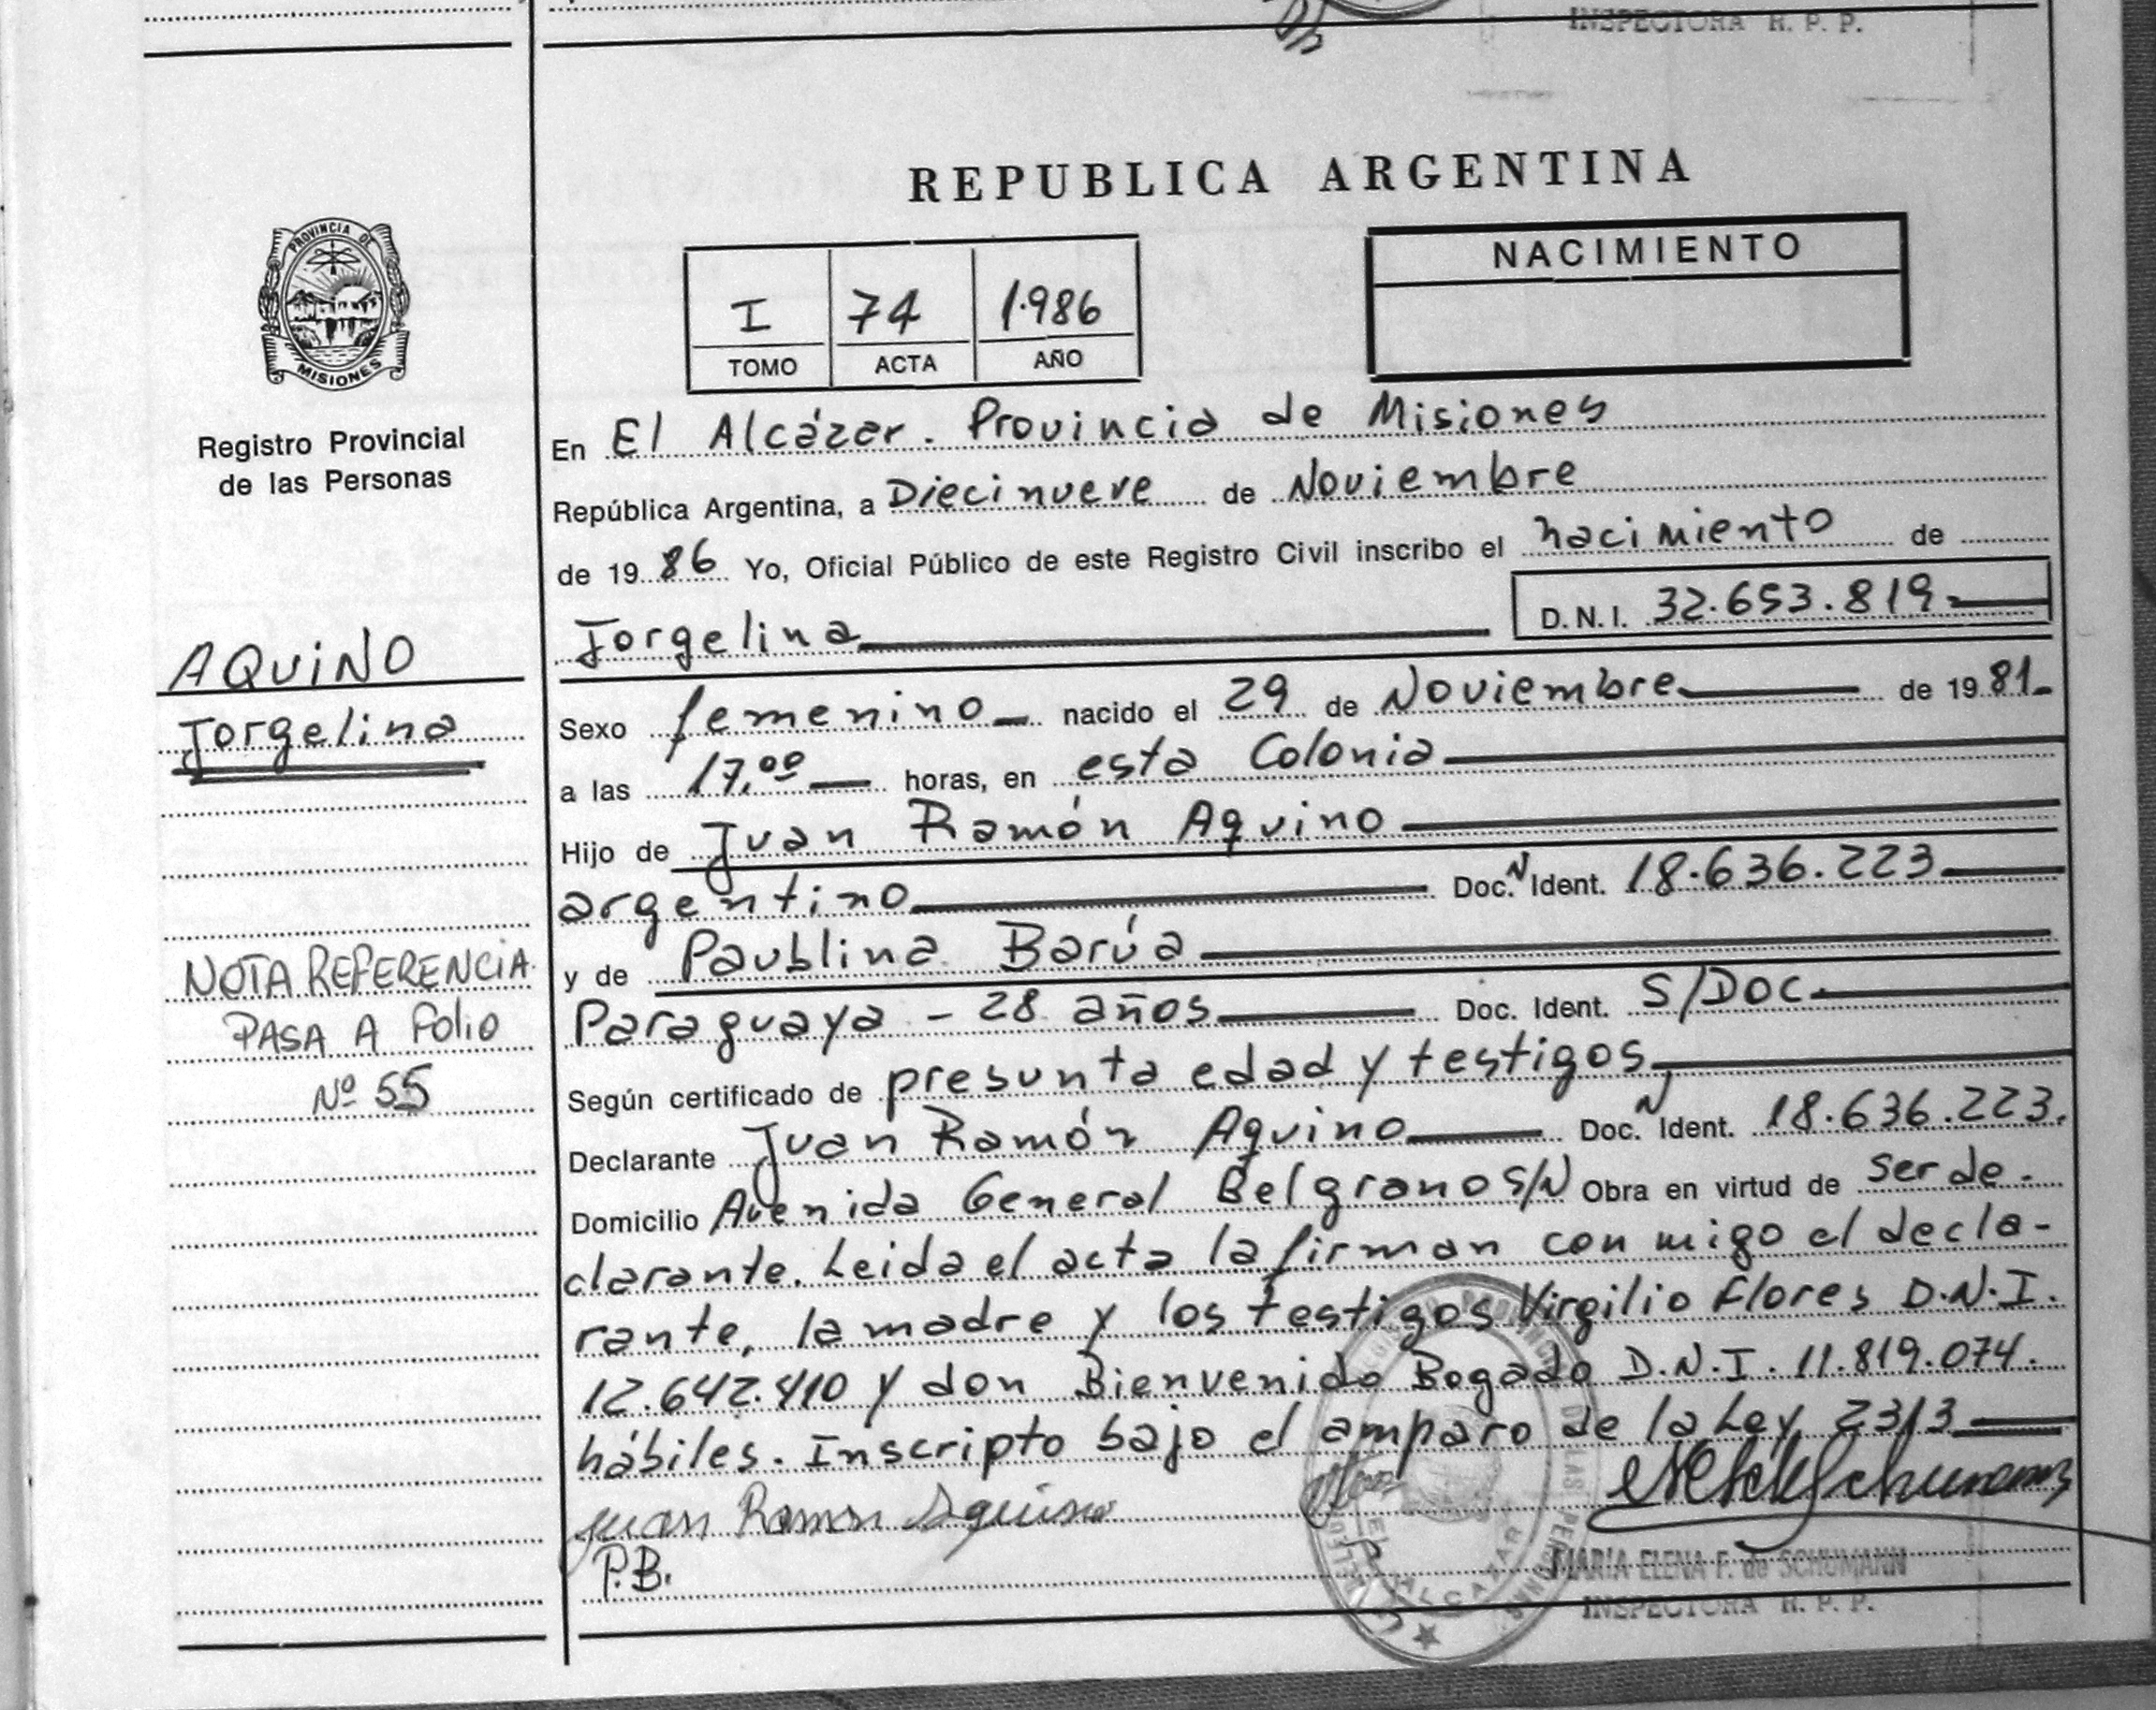 INSPECTORA R. P. P.
REPUBLICA ARGENTINA
PROVINCIA DE
MISIONES
Registro Provincial
de las Personas
I 74 1.986
TOMO ACTA AÑO
NACIMIENTO
En El Alcázar. Provincia de Misiones
República Argentina, a Diecinueve de Noviembre
de 1986 Yo, Oficial Público de este Registro Civil inscribo el nacimiento de
Jorgelina D.N.I. 32.653.819.
AQUINO
Jorgelina
Sexo femenino nacido el 29 de Noviembre de 1981.
a las 17,00 horas, en esta Colonia
Hijo de Juan Ramón Aquino
argentino Doc. N Ident. 18.636.223
y de Paublina Barúa
Paraguaya - 28 años Doc. Ident. S/DOC.
NOTA REFERENCIA
PASA A Folio
Nº 55
Según certificado de presunta edad y testigos,
Declarante Juan Ramón Aquino Doc. N Ident. 18.636.223.
Domicilio Avenida General Belgrano S/N Obra en virtud de ser de-
clarante. Leida el acta la firman con migo el decla-
rante, la madre y los testigos Virgilio Flores D.N.I.
12.642.410 y don Bienvenido Bogado D.N.I. 11.819.074.
hábiles. Inscripto bajo el amparo de la Ley 2313
Juan Ramon Aquino
P.B.
EL ALCAZAR
MARIA ELENA F. de SCHUMANN
INSPECTORA R. P. P.